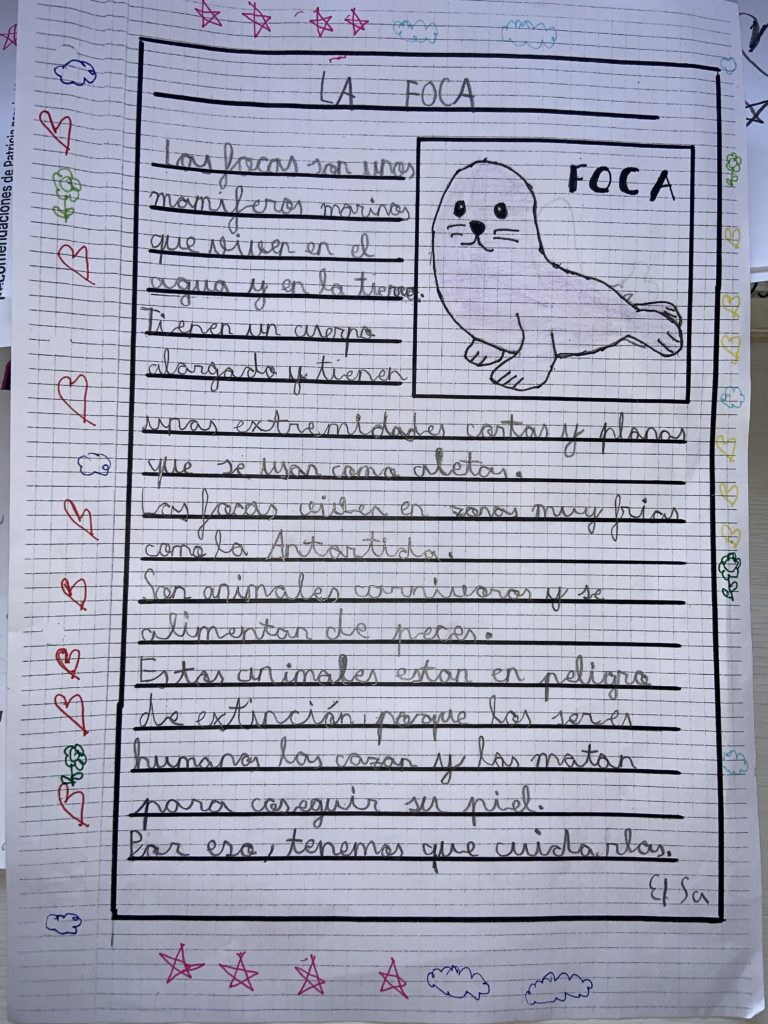 LA FOCA
FOCA
Las focas son unos
mamíferos marinos
que viven en el
agua y en la tierra.
Tienen un cuerpo
alargado y tienen
unas extremidades cortas y planas
que se usan como aletas.
Las focas viven en zonas muy frias
como la Antartida.
Son animales carnivoros y se
alimentan de peces.
Estos animales estan en peligro
de extinción, porque los seres
humanos las cazan y las matan
para coseguir su piel.
Por eso, tenemos que cuidarlas.
ElSa